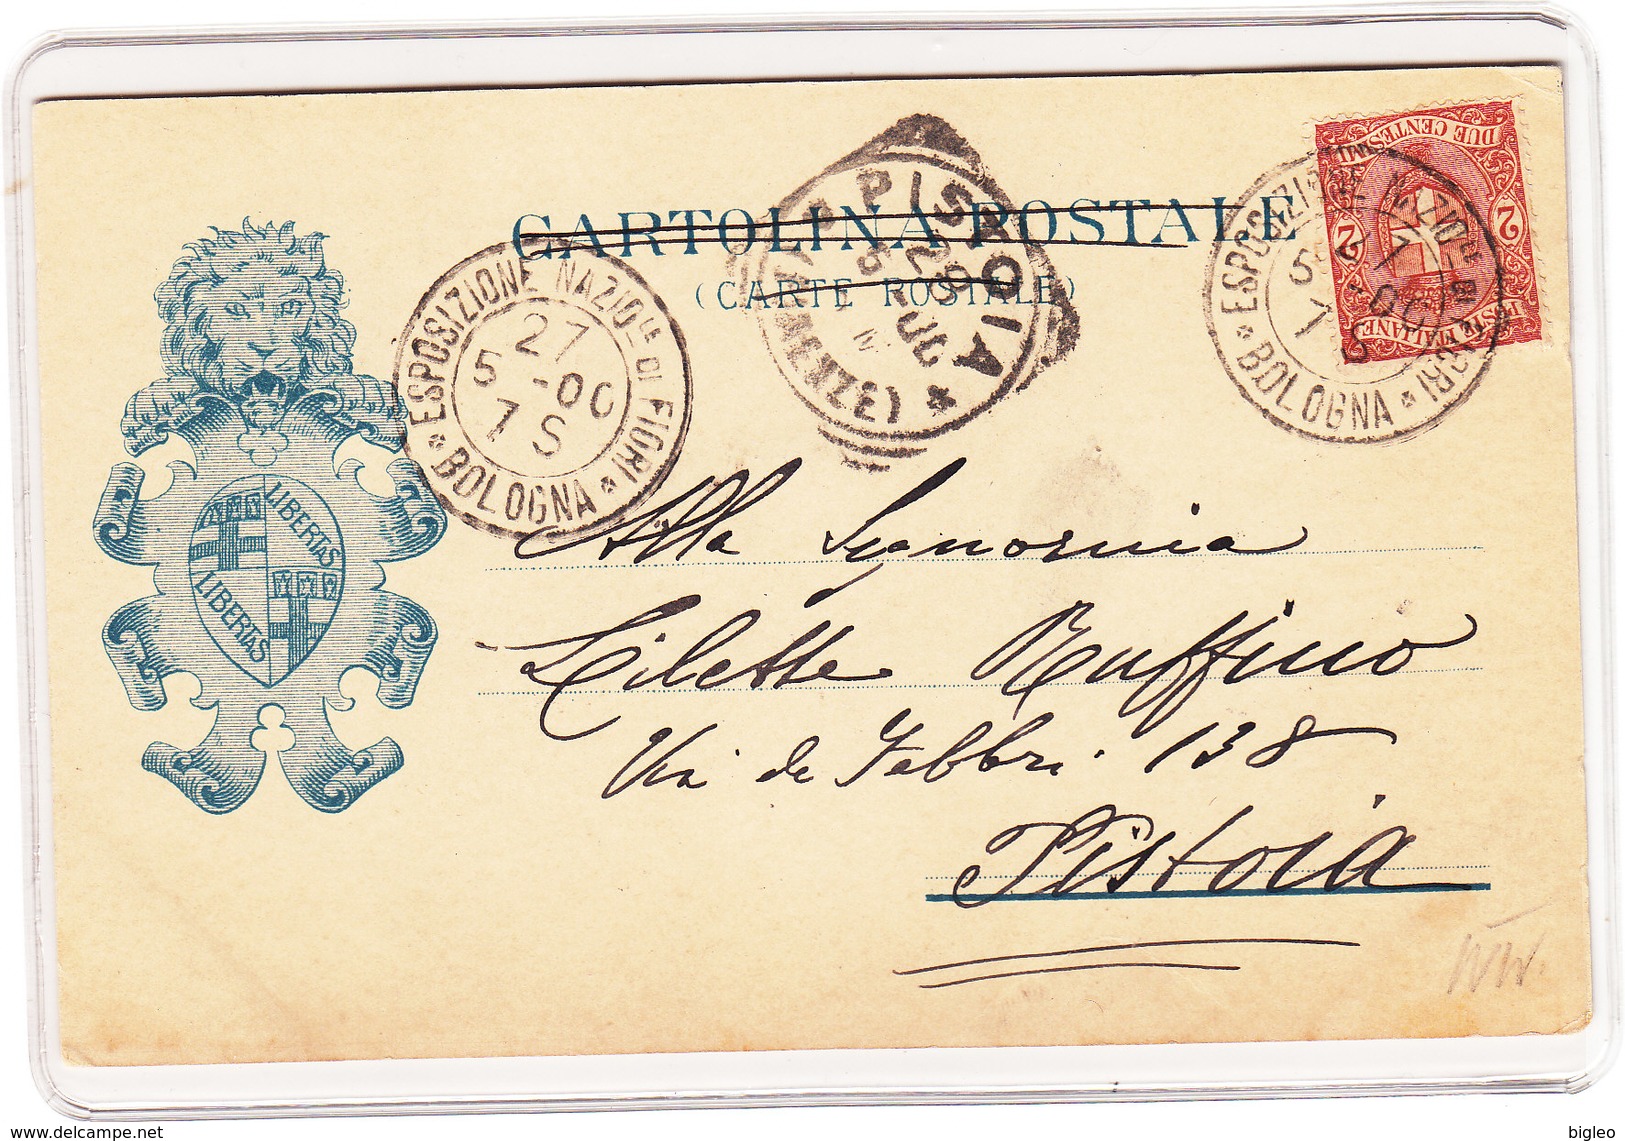 CARTOLINA POSTALE
(CARTE POSTALE)
ESPOSIZIONE NAZIOLE DI FIORI
27
5 -00
7 S
* BOLOGNA *
PISTOIA *
(FIRENZE)
28
5 00
DUE CENTESIMI
2 2
POSTE ITALIANE
ESPOSIZIONE NAZIOLE DI FIORI
7 S
* BOLOGNA *
LIBERTAS
LIBERTAS
Alla Signorina
Lilette Ruffino
Via de Fabbri 138
Pistoia
delcampe.net
bigleo